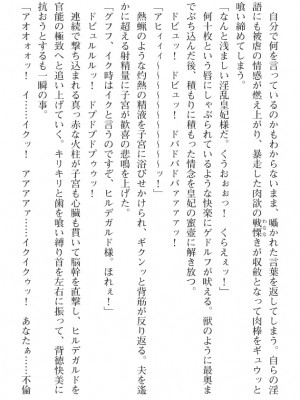 自分で何を言っているのかもわからないまま、囁かれた言葉を返してしまう。自らの淫
語にも被虐の情感が燃え上がり、暴走した肉欲の戦慄きが収斂となって肉棒をギュウッと
喰い締めてしまう。
「なんと浅ましい淫乱皇妃様だ。くうおおおっ！　くらえぇッ！」
何十枚という唇にしゃぶられているような快楽にゲドルフが吠える。獣のように最奥ま
でぶち込んだ後、積もりに積もった情念を皇妃の蜜壺に解き放つ。
ドビュッ！　ドビュッ！　ドバドバァァァァッ！
「アヒィィィ～～～～～～～～ッ！」
熱蝋のような灼熱の精液を子宮に浴びせかけられ、ギクンッと背筋が反り返る。夫を遥
かに超える射精量に子宮が歓喜の悲鳴を上げた。
「グフフ、イク時はイクと言うのですぞ、ヒルデガルド様。ほれぇ！」
ドビュルルルッ！　ドプドプドプゥゥッ！
連続で撃ち込まれる真っ赤な火柱が子宮も心臓も貫いて脳幹を直撃し、ヒルデガルドを
官能の極致へと追い上げていく。キリキリと歯を喰い縛り首を左右に振って、背徳快美に
抗おうとするも一瞬の事。
「アオオォォッ！　イ……イクッ！　アアアアァ……イクゥッ！　あなたぁ……不倫